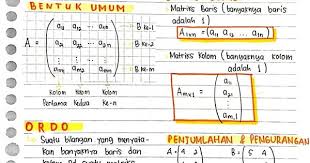 BENTUK UMUM
A = ( a₁₁ a₁₂ ... a₁ₙ ) B ke-1
a₂₁ a₂₂ ... a₂ₙ B ke-2
⋮ ⋮ ⋮
aₘ₁ aₘ₂ ... aₘₙ B ke-m
Kolom Kolom Kolom
Pertama Kedua Ke-n
Matriks Baris (banyaknya baris
adalah 1)
A₁ₓₙ = (a₁₁ a₁₂ ... a₁ₙ)
Matriks Kolom (banyaknya kolom
adalah 1)
Aₘₓ₁ = ( a₁₁
a₂₁
⋮
aₘ₁ )
ORDO
Suatu bilangan yang menyata-
kan banyaknya baris dan
PENJUMLAHAN & PENGURANGAN
A = (4 2) B = (5 4)